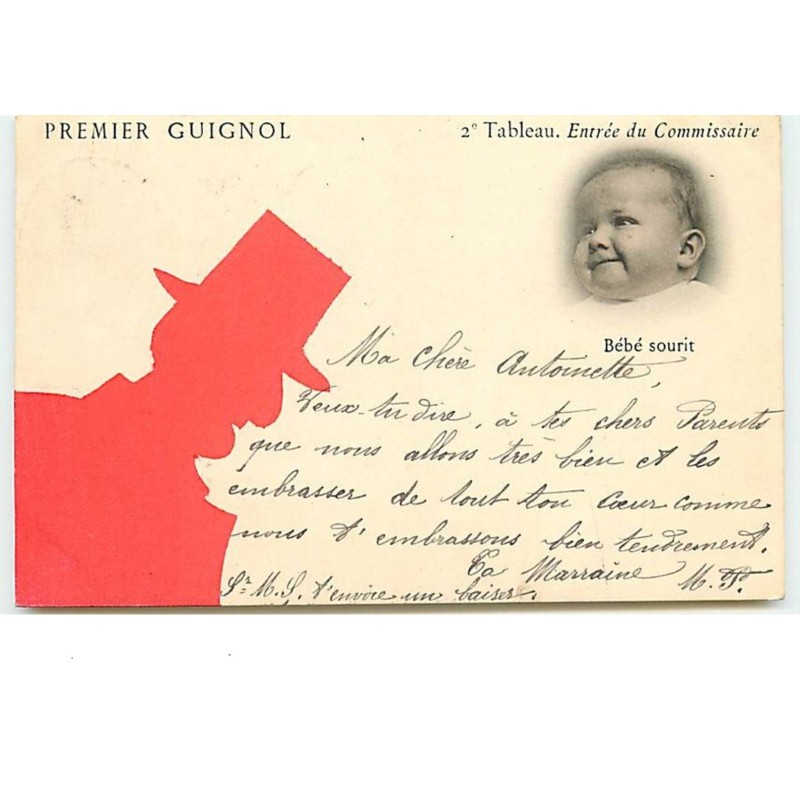 PREMIER GUIGNOL
2e Tableau. Entrée du Commissaire
Bébé sourit
Ma chère Antoinette,
Veux-tu dire, à tes chers Parents
que nous allons très bien et les
embrasser de tout ton cœur comme
nous t'embrassons bien tendrement.
Ta Marraine M.
Sr M. S. t'envoie un baiser.